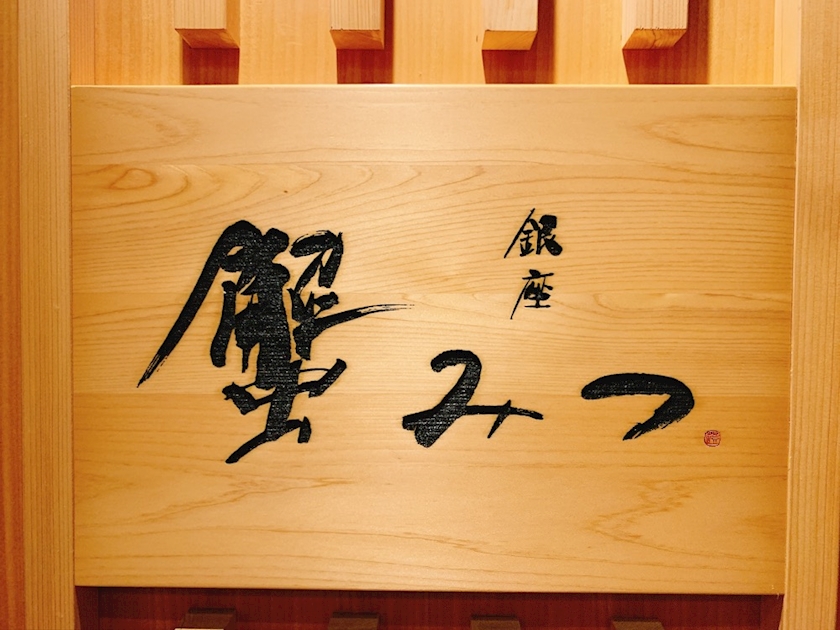 銀座
蟹みつ